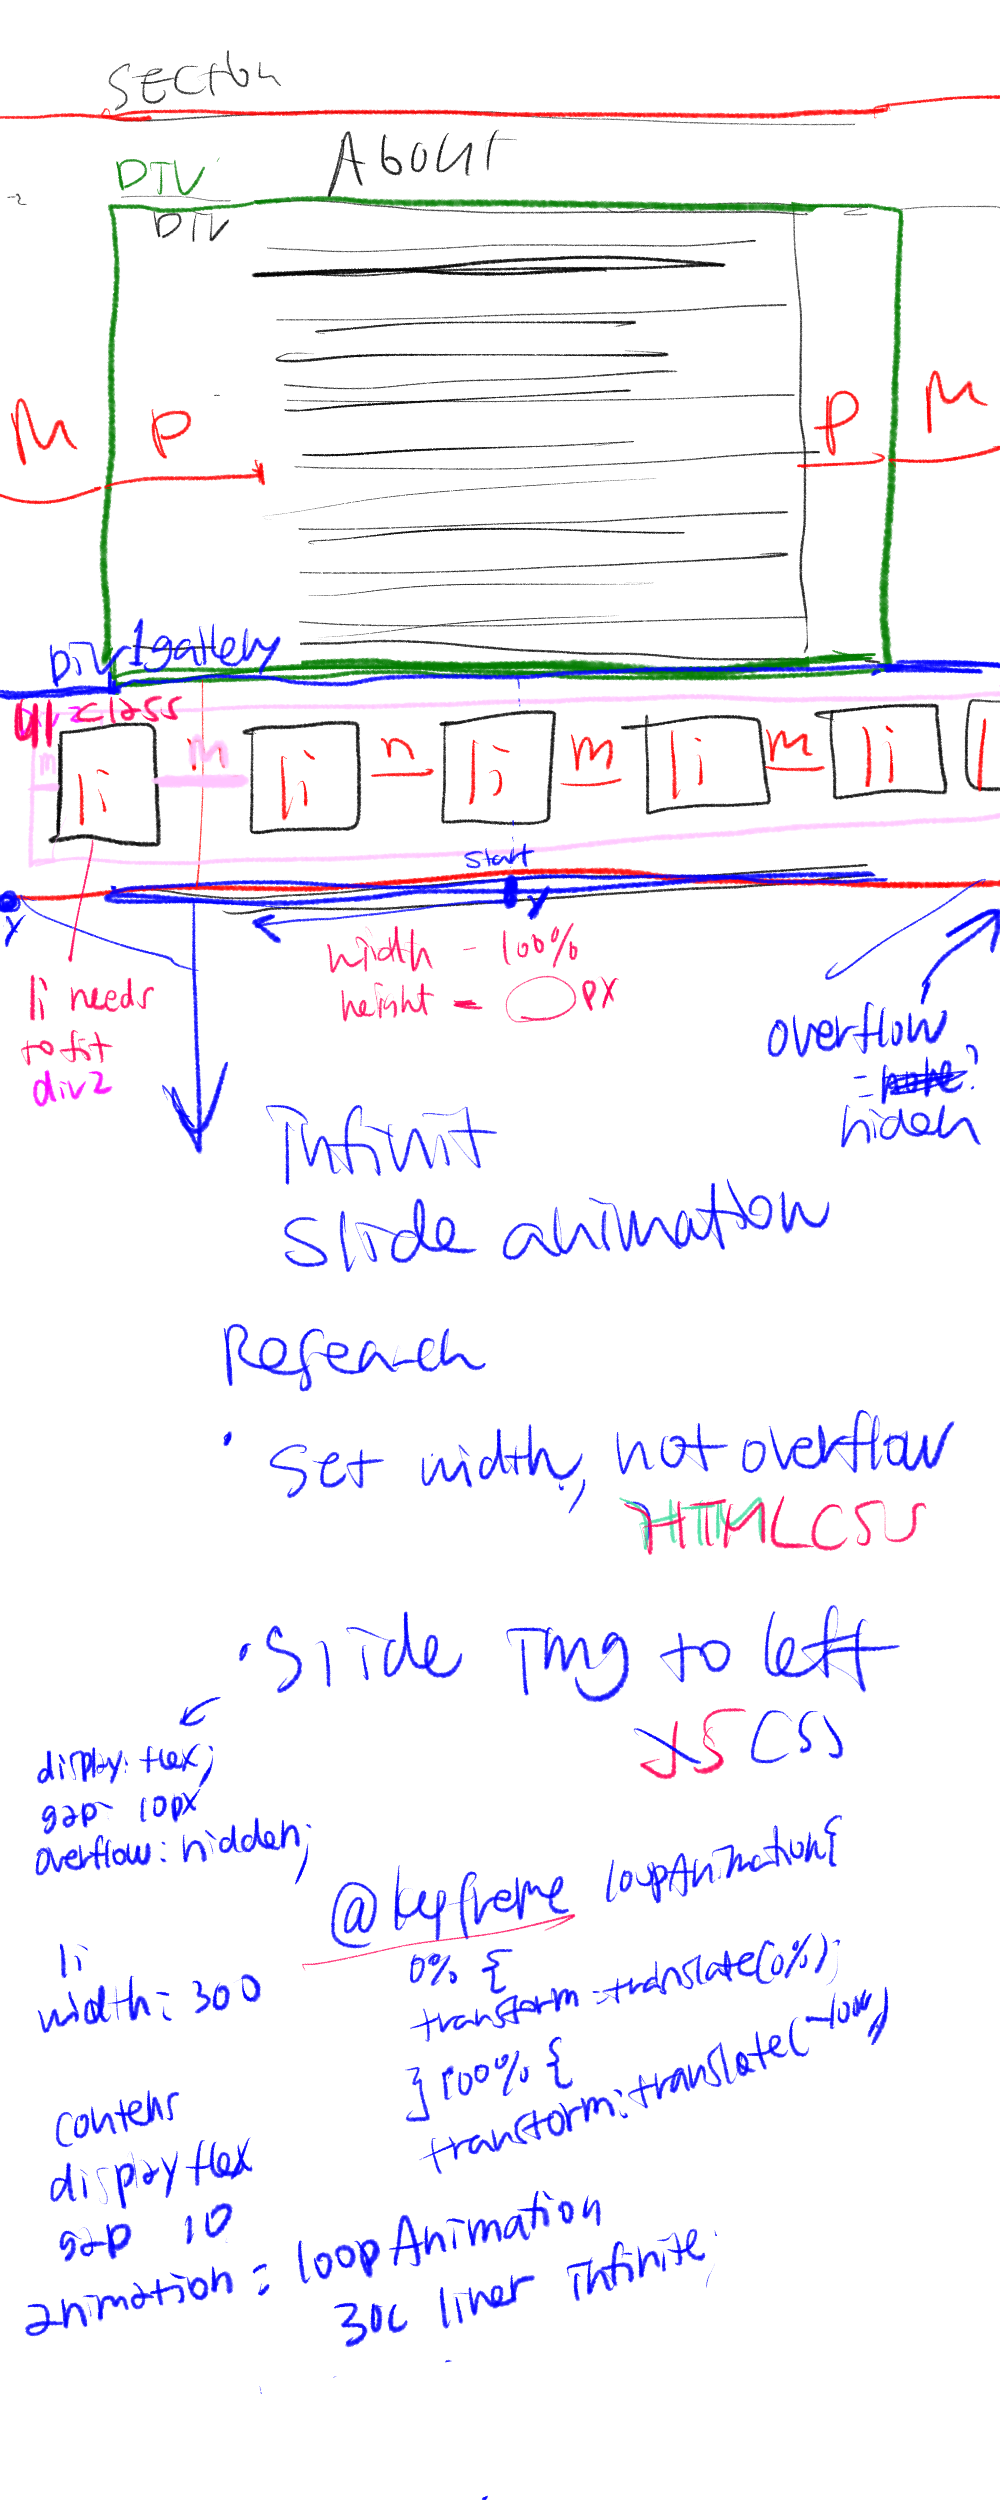 SECtion
DIV
About
DIV
M P P M
DIV 1gallery
ul class
m li m li n li m li m li
start
Y Y
width - 100%
height = px
li needs
to fit
div2
overflow
= none?
hideen
Infinit
Slide animation
Research
• Set width, not overflow
HTML CSS
• Slide Img to left
JS CSS
display: flex;
gap- 10px
overflow: hidden;
@keyfreme loopAnimation{
0% {
transform: translate(0%);
} 100% {
transform: translate(-100%)
li
width: 300
contens
display flex
gap 10
animation: loopAnimation
30c liner infinite;